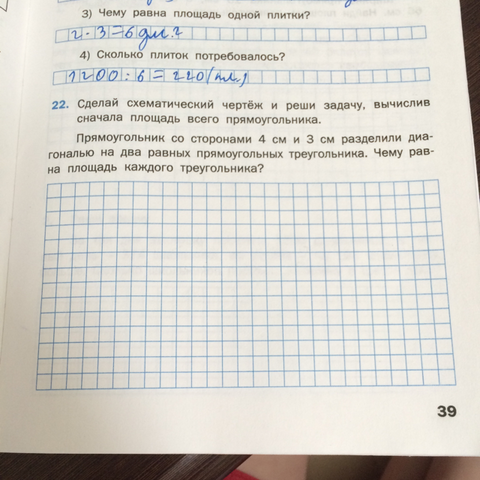 3) Чему равна площадь одной плитки?
2 · 3 = 6 дм.²
4) Сколько плиток потребовалось?
1200 : 6 = 220 (пл.)
22. Сделай схематический чертёж и реши задачу, вычислив
сначала площадь всего прямоугольника.
Прямоугольник со сторонами 4 см и 3 см разделили диа-
гональю на два равных прямоугольных треугольника. Чему рав-
на площадь каждого треугольника?
39